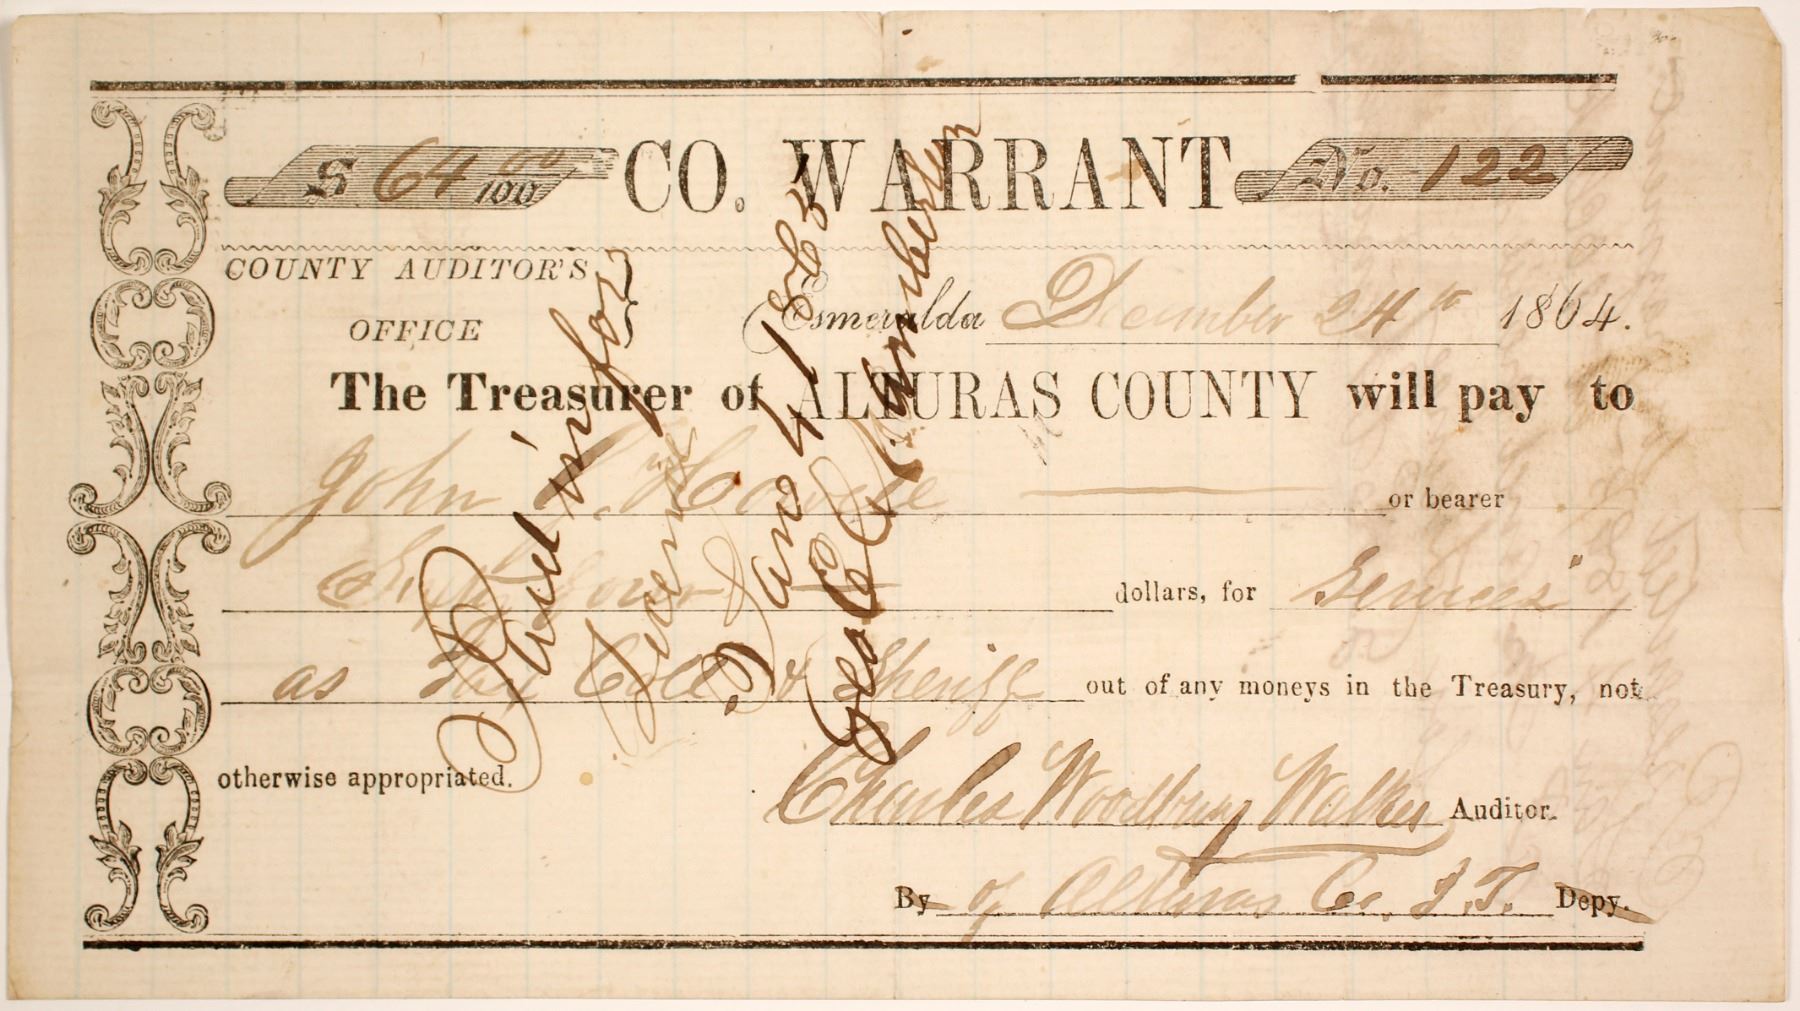 $ 64 00/100 CO. WARRANT No. 122
COUNTY AUDITOR'S
OFFICE
Esmeralda December 24th 1864.
The Treasurer of ALTURAS COUNTY will pay to
John or bearer
Sixty four dollars, for Services
as Tax Coll. & Sheriff out of any moneys in the Treasury, not
otherwise appropriated.
Charles Woodbury Walker Auditor.
By of Alturas Co. I.T. Depy.
Paid in for
License
Jan 4 1865
Geo C Chamberlin